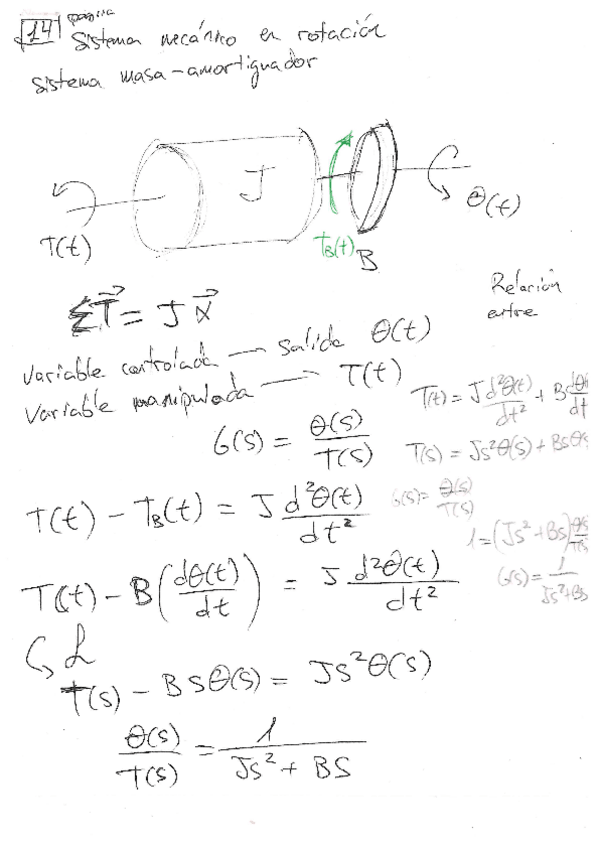 14 página
Sistema mecánico en rotación
Sistema masa-amortiguador
J
T(t)
T_B(t)
B
θ(t)
ΣT⃗ = J α⃗
Relación
entre
Variable controlada — salida θ(t)
Variable manipulada — T(t)
G(s) = θ(s)/T(s)
T(t) = J d²θ(t)/dt² + B dθ/dt
T(s) = Js²θ(s) + Bsθs
G(s) = θ(s)/T(s)
1 = (Js² + Bs) θ(s)/T(s)
G(s) = 1/Js²+Bs
T(t) - T_B(t) = J d²θ(t)/dt²
T(t) - B(dθ(t)/dt) = J d²θ(t)/dt²
↳ ℒ
T(s) - Bsθ(s) = Js²θ(s)
θ(s)/T(s) = 1/Js² + BS